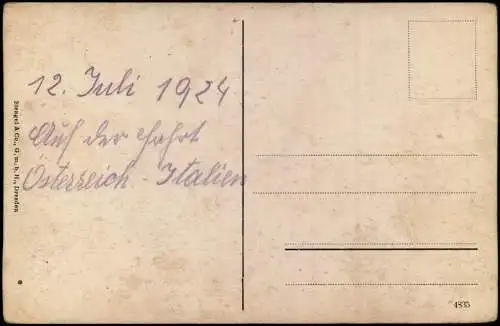 12. Juli 1924
Auf der Fahrt
Österreich - Italien
Stengel & Co., G. m. b. H., Dresden
4835